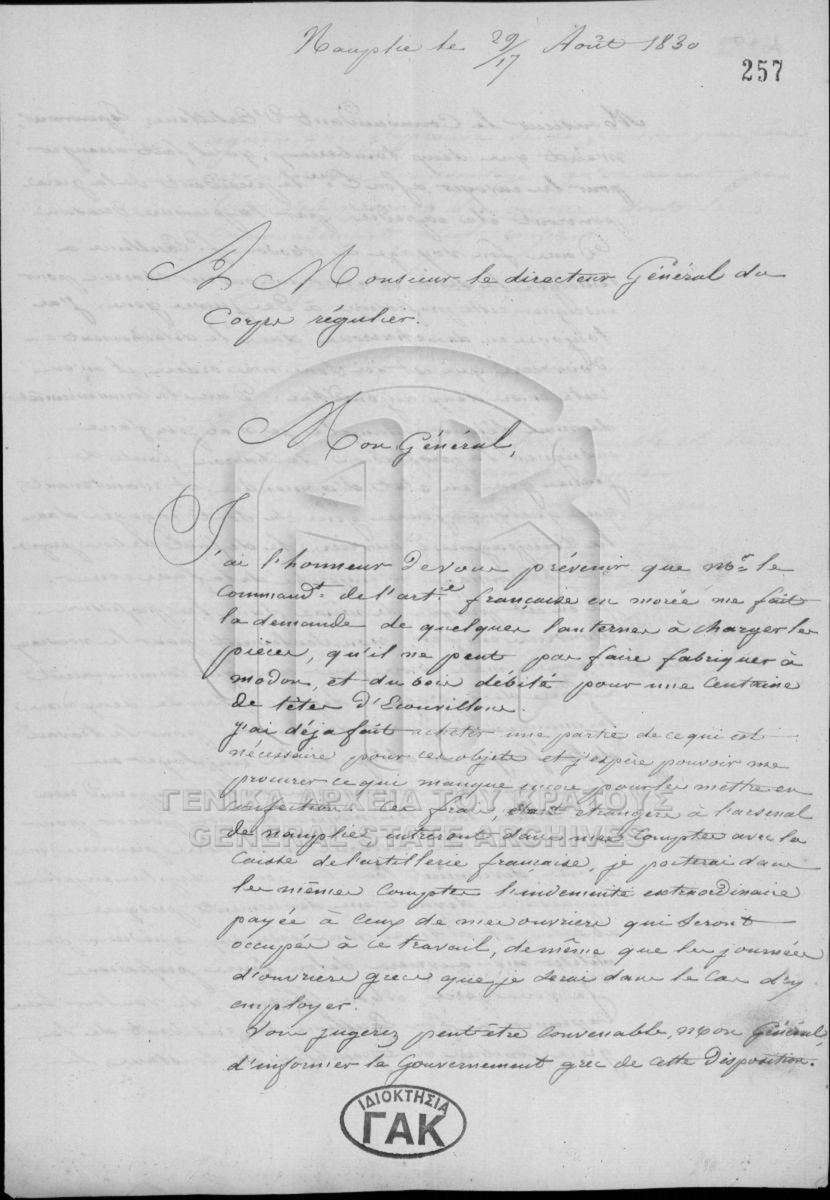 Nauplie le 29/17 Août 1830
257
A Monsieur le directeur Général du
Corps régulier.
Mon Général,
J'ai l'honneur de vous prévenir que Mr. le
Command.t de l'art.ie française en morée me fait
la demande de quelques lanternes à charger les
pièces, qu'il ne peut pas faire fabriquer à
modon, et du bois débité pour une centaine
de têtes d'Ecouvillons.
J'ai déja fait acheter une partie de ce qui est
nécessaire pour ces objets et j'espère pouvoir me
procurer ce qui manque encore pour les mettre en
confection ces frais, étant étrangers à l'arsenal
de nauplie, entreront dans mes Comptes avec la
Caisse de l'artillerie française, je porterai dans
les même Comptes l'indemnité extraordinaire
payée à ceux de mes ouvriers qui seront
occupés à ce travail, de même que les journées
d'ouvriers grecs que je serai dans le cas d'y
employer.
Vous jugerez peut-être convenable, mon Général,
d'informer le Gouvernement grec de cette disposition.
ΓΕΝΙΚΑ ΑΡΧΕΙΑ ΤΟΥ ΚΡΑΤΟΥΣ
GENERAL STATE ARCHIVES
ΙΔΙΟΚΤΗΣΙΑ
ΓΑΚ